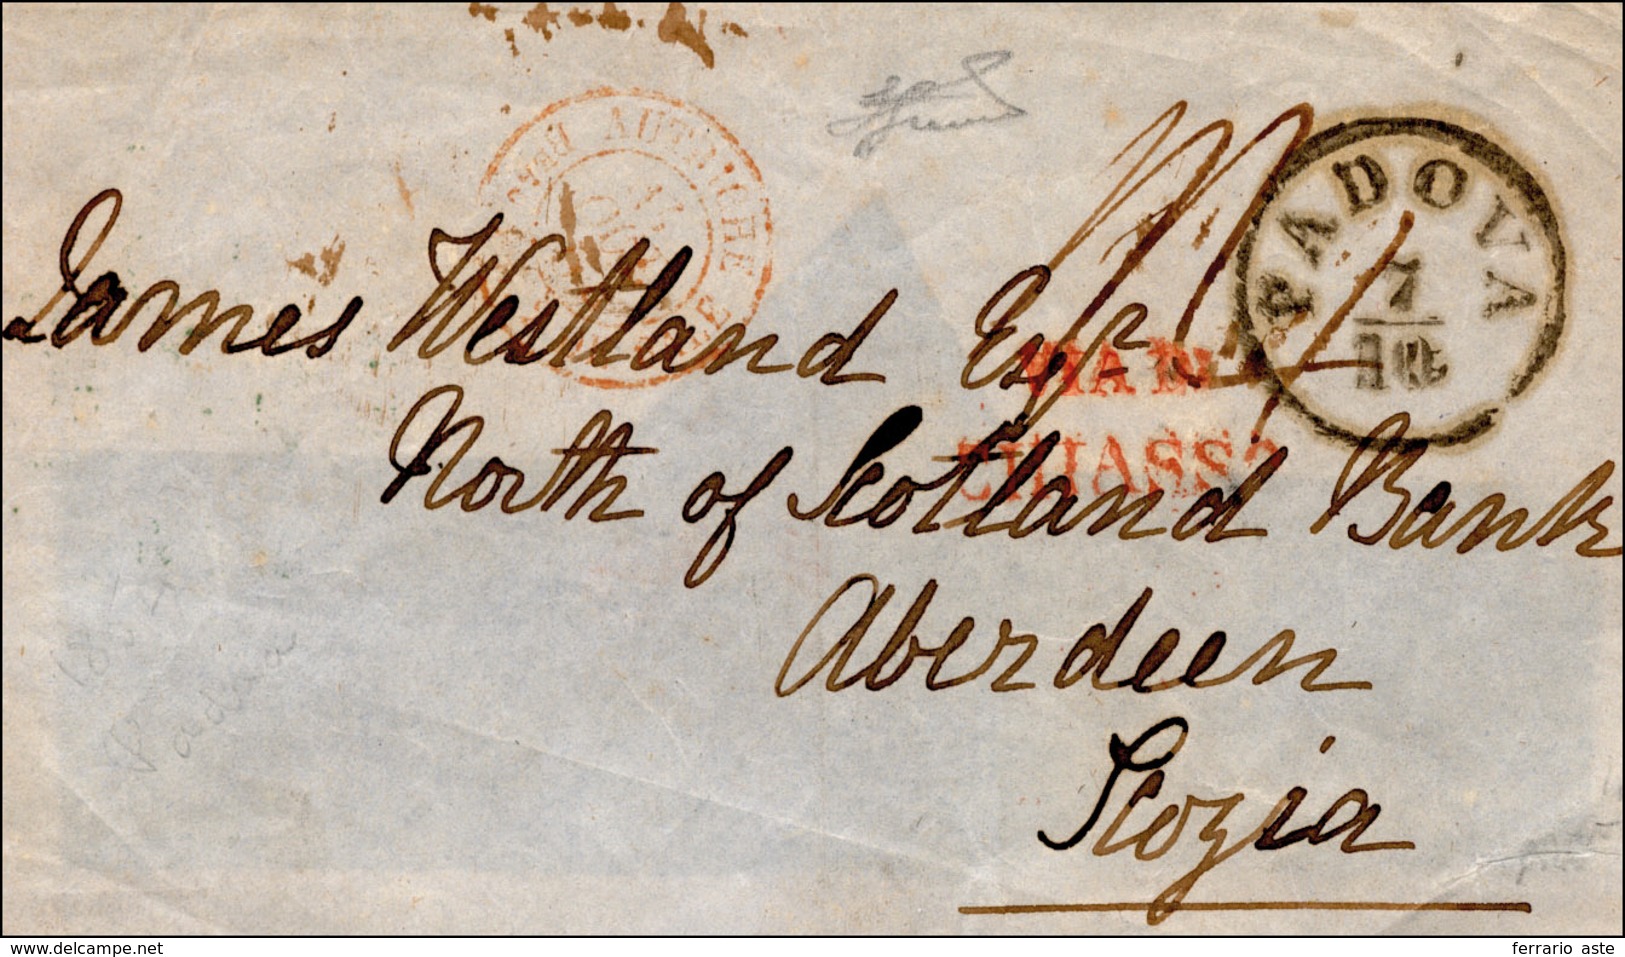 AUTRICHE
PADOVA
7
10
James Westland Esqre
VIA DI
CHIASSO
North of Scotland Bank
Aberdeen
Scozia
Padova
www.delcampe.net
ferrario aste